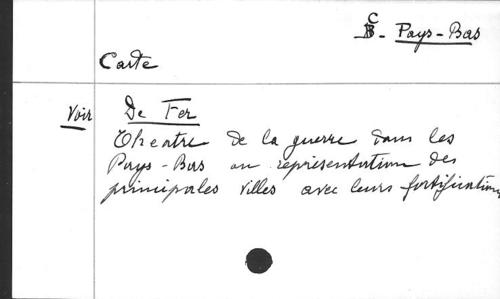 C
B. Pays-Bas
Carte
Voir De Fer
Theatre de la guerre dans les
Pays-Bas ou représentation des
principales villes avec leurs fortifications